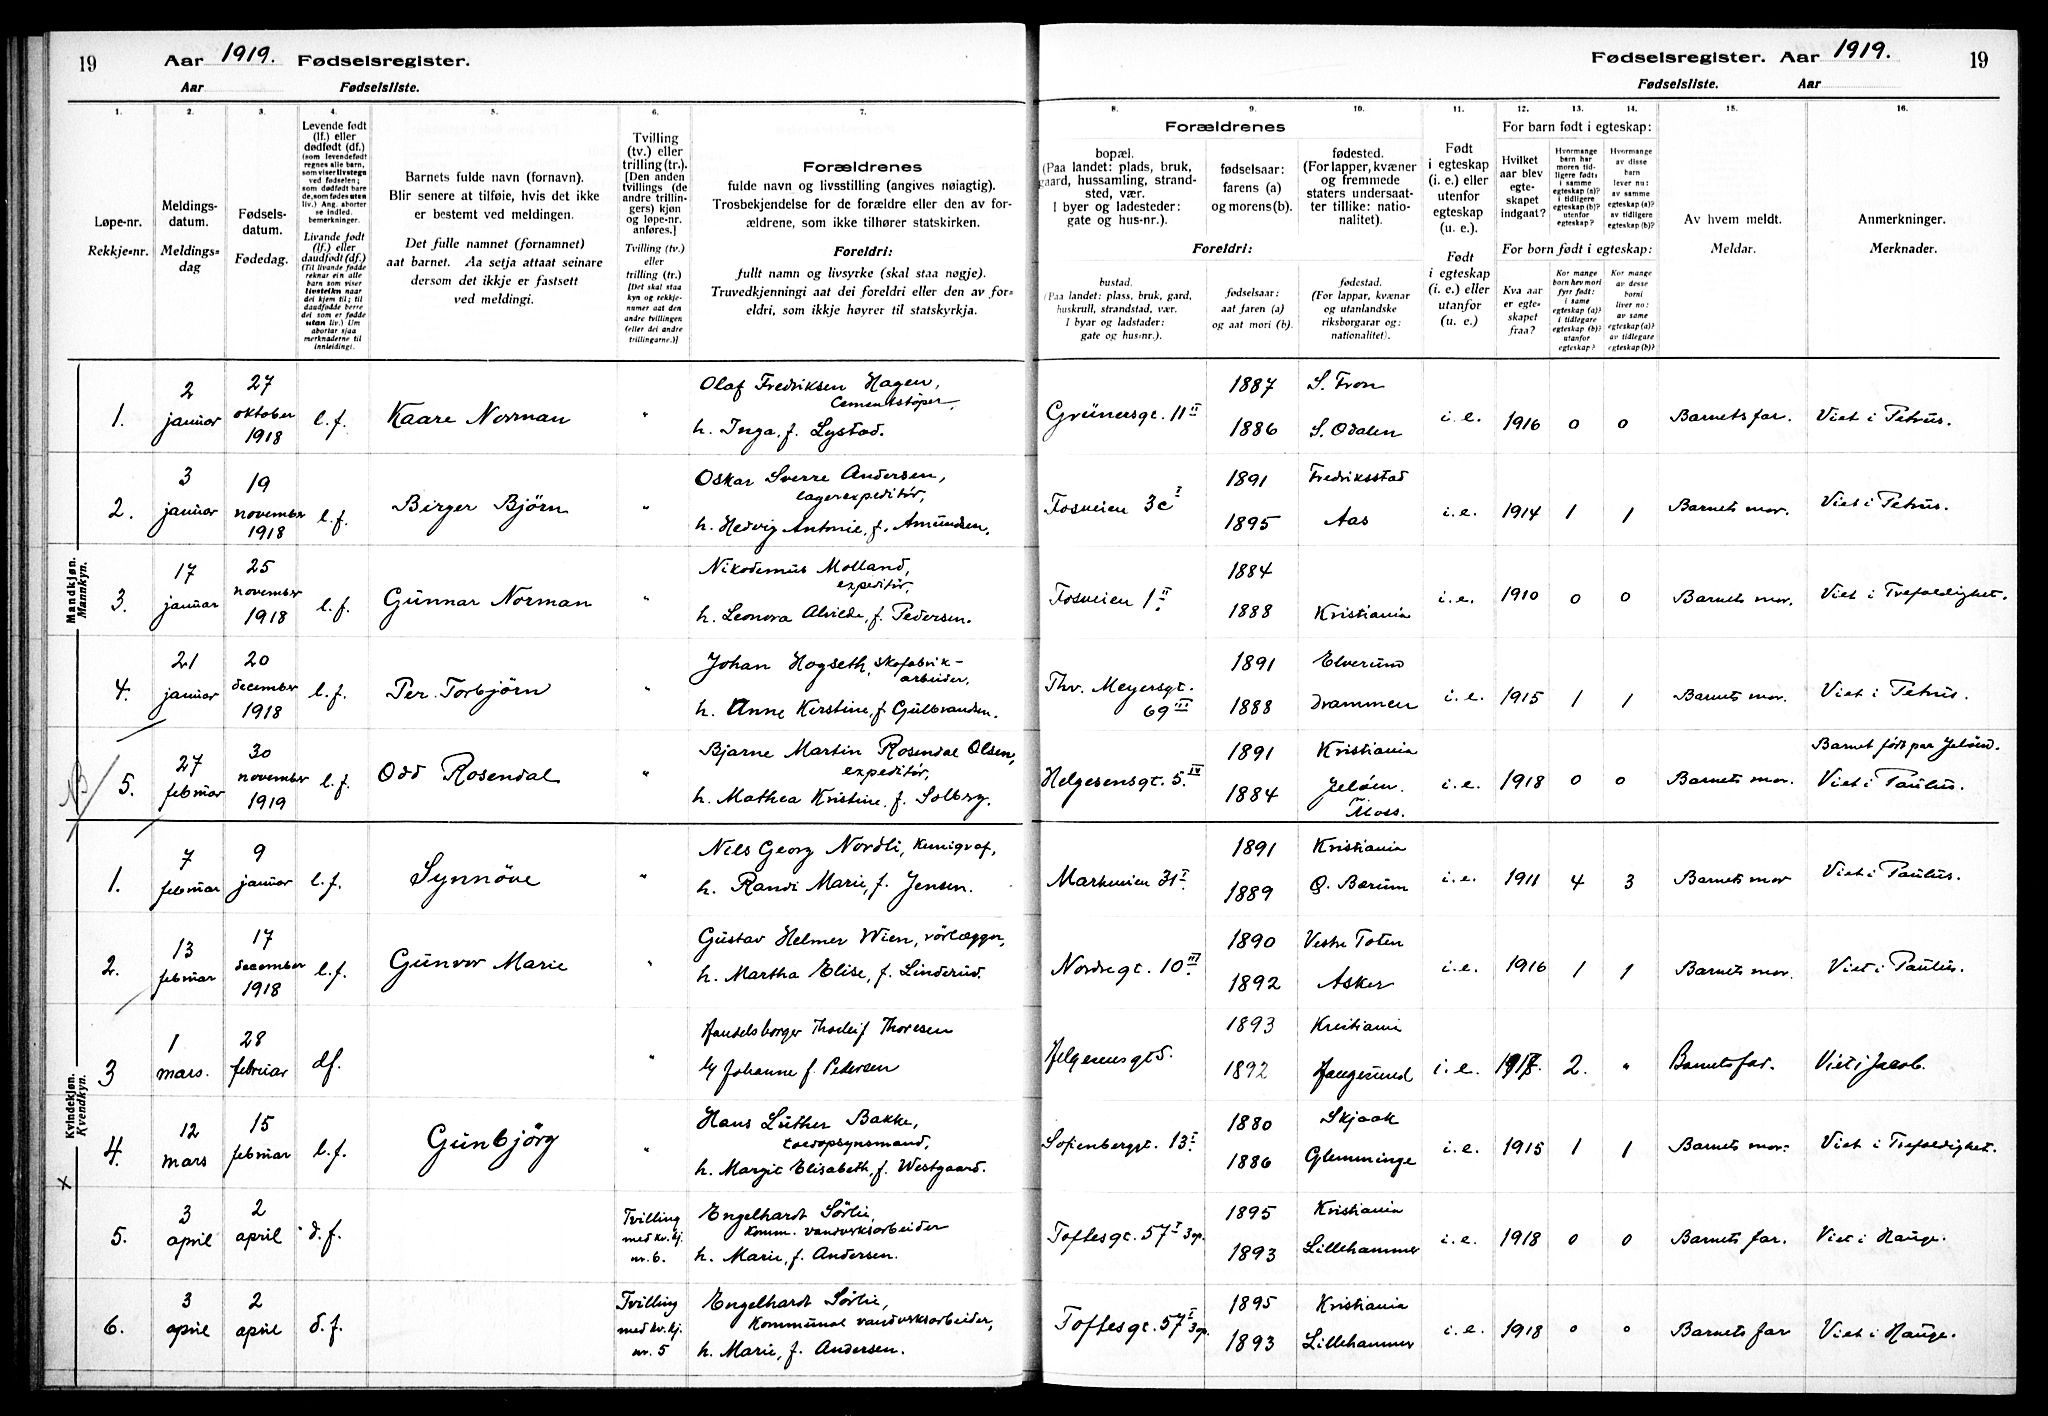 19 Aar 1919. Fødselsregister.
Aar Fødselsliste.
Fødselsregister. Aar 1919. 19
Fødselsliste. Aar
1. 2. 3. 4. 5. 6. 7. 8. 9. 10. 11. 12. 13. 14. 15. 16.
Løpe-nr.
Rekkje-nr.
Meldings-
datum.
Meldings-
dag
Fødsels-
datum.
Fødedag.
Levende født
(lf.) eller
dødfødt (df.)
(som levendefødt
regnes alle barn,
som viser livstegn
ved fødselen;
som dødfødt bare
de, som fødes uten
liv.) Ang. aborter
se indled.
bemerkninger.
Livande født
(lf.) eller
daudfødt (df.)
(Til livande fødde
reknar ein alle
barn som viser
livsteikn naar
dei kjem til; til
daudfødde berre
dei som er fødde
utan liv.) Um
abortar sjaa
merknaderne til
innleidingi.
Barnets fulde navn (fornavn).
Blir senere at tilføie, hvis det ikke
er bestemt ved meldingen.
Det fulle namnet (fornamnet)
aat barnet. Aa setja attaat seinare
dersom det ikkje er fastsett
ved meldingi.
Tvilling
(tv.) eller
trilling (tr.).
[Den anden
tvillings (de
andre trillin-
gers) kjøn
og løpe-nr.
anføres.]
Tvilling (tv.)
eller
trilling (tr.)
[Det skal staa
kyn og rekkje-
numer aat den
andre tvillingen
(eller dei andre
trillingarne.)]
Forældrenes
fulde navn og livsstilling (angives nøiagtig).
Trosbekjendelse for de forældre eller den av for-
ældrene, som ikke tilhører statskirken.
Foreldri:
fullt namn og livsyrke (skal staa nøgje).
Truvedkjenningi aat dei foreldri eller den av for-
eldri, som ikkje høyrer til statskyrkja.
Forældrenes
bopæl.
(Paa landet: plads, bruk,
gaard, hussamling, strand-
sted, vær.
I byer og ladesteder:
gate og hus-nr.).
fødselsaar:
farens (a)
og morens (b).
fødested.
(For lapper, kvæner
og fremmede
staters undersaat-
ter tillike: natio-
nalitet).
Foreldri:
bustad.
(Paa landet: plass, bruk, gard,
huskrull, strandstad, vær.
I byar og ladstader:
gate og hus-nr.).
fødselsaar:
aat faren (a)
og aat mori (b).
fødestad.
(For lappar, kvænar
og utanlandske
riksborgarar og:
nationalitet).
Født
i egteskap
(i. e.) eller
utenfor
egteskap
(u. e.).
Født
i egteskap
(i. e.) eller
utanfor
(u. e.).
For barn født i egteskap:
Hvilket
aar blev
egte-
skapet
indgaat?
Hvormange
barn har
moren tid-
ligere født:
i samme
egteskap (a)?
i tidligere
egteskap (b)?
utenfor
egteskap?
Hvormange
av disse
barn
lever nu:
av samme
egteskap (a)?
av tidligere
egteskap (b)?
For born født i egteskap:
Kva aar
er egte-
skapet
fraa?
Kor mange
born hev mori
fyrr født:
i same
egteskap (a)?
i tidlegare
egteskap (b)?
utanfor
egteskap?
Kor mange
av desse
borni
liver no:
av same
egteskap (a)?
av tidlegare
egteskap (b)?
Av hvem meldt.
Meldar.
Anmerkninger.
Merknader.
Mandkjøn.
Mannkyn.
1. 2 januar 27 oktober 1918 l.f. Kaare Norman " Olaf Fredriksen Hagen, Cementstøper, h. Inga, f. Lystad. Grünersgt. 11 II 1887 1886 S. Fron S. Odalen i.e. 1916 0 0 Barnets far. Viet i Petrus.
2. 3 januar 19 november 1918 l.f. Birger Björn " Oskar Sverre Andersen, lagerexpeditör, h. Hedvig Antonie, f. Amundsen. Fosveien 3c I 1891 1895 Fredriksstad Aas i.e. 1914 1 1 Barnets mor. Viet i Petrus.
3. 17 januar 25 november 1918 l.f. Gunnar Norman " Nikodemus Molland, expeditör, h. Leonora Alvilde, f. Pedersen. Fosveien 1 II 1884 1888 Kristiania i.e. 1910 0 0 Barnets mor. Viet i Trefoldighet.
4. 21 januar 20 december 1918 l.f. Per Torbjörn " Johan Hogseth, skofabrik-arbeider, h. Anne Kirstine, f. Gulbrandsen. Thv. Meyersgt. 69 III 1891 1888 Elverum Drammen i.e. 1915 1 1 Barnets mor. Viet i Petrus.
NB 5. 27 februar 30 november 1919 l.f. Odd Rosendal " Bjarne Martin Rosendal Olsen, expeditör, h. Mathea Kristine, f. Solberg. Helgesensgt. 5. IV 1891 1884 Kristiania Jeløen pr. Moss. i.e. 1918 0 0 Barnets mor. Barnet født paa Jeløen. Viet i Paulus.
Kvindekjøn.
Kvendkyn.
1. 7 februar 9 januar l.f. Synnöve " Nils Georg Nordli, Kemigraf, h. Randi Marie, f. Jensen. Markveien 31 I 1891 1889 Kristiania Ø. Bærum i.e. 1911 4 3 Barnets mor Viet i Paulus.
2. 13 februar 17 december 1918 l.f. Gunvor Marie " Gustav Helmer Wien, rörlægger, h. Martha Elise, f. Linderud Nordregt. 10 III 1890 1892 Vestre Toten Asker i.e. 1916 1 1 Barnets mor. Viet i Paulus.
3 1 mars. 28 februar df. " Handelsborger Thorleif Thoresen Johanne f. Petersen Helgesensgt 5. 1893 1892 Kristiania Haugesund i.e. 1917. 2. " Barnets far. Viet i Jacob.
4. 12 mars 15 februar l.f. Gunbjörg " Hans Luther Bakke, toldopsynsmand, h. Margit Elisabeth, f. Westgaard. Sofienberggt. 13 I 1880 1886 Skjaak Glemminge i.e. 1915 1 1 Barnets mor. Viet i Trefoldighet.
x
5. 3 april 2 april d.f. Tvilling med kv. kj. nr. 6. Engelhardt Sørlie, Komm. vandverksarbeider h. Marie, f. Andersen. Toftesgt. 57 I 3 op. 1895 1893 Kristiania Lillehammer i.e. 1918 0 0 Barnets far. Viet i Hauge.
6. 3 april 2 april d.f. Tvilling med kv. kj. nr. 5 Engelhardt Sørlie, Kommunal vandverksarbeider, h. Marie, f. Andersen. Toftesgt. 57 I 3 op. 1895 1893 Kristiania Lillehammer i.e. 1918 0 0 Barnets far Viet i Hauge.